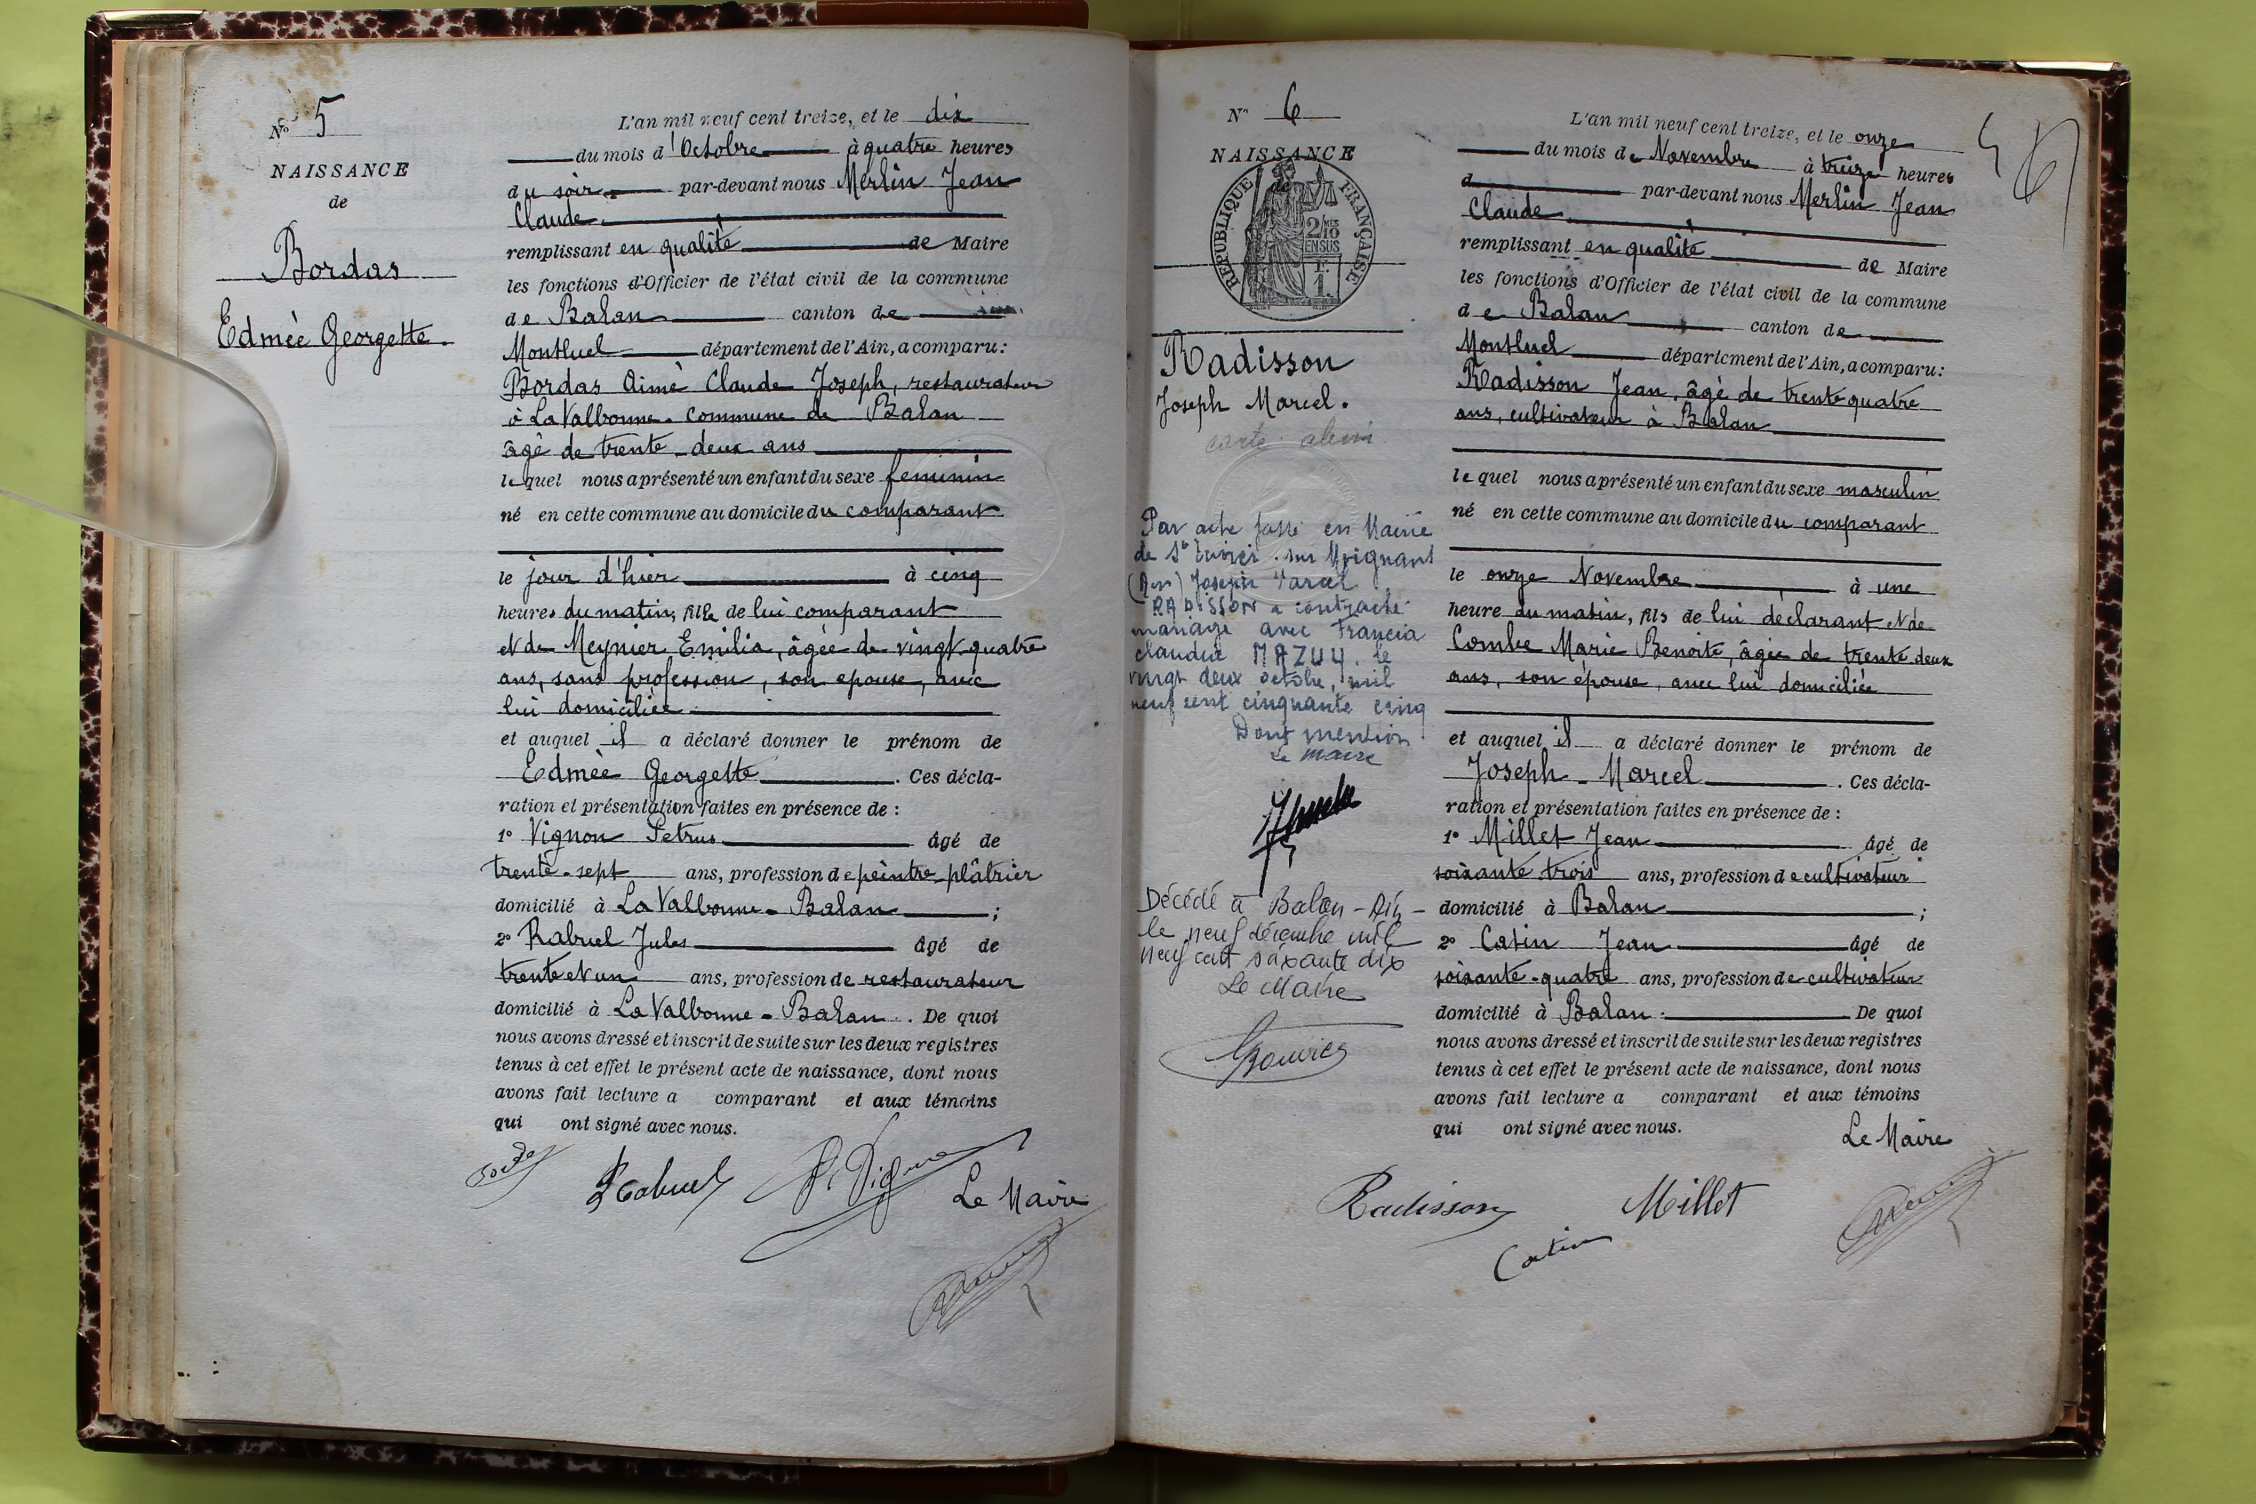 N° 5
NAISSANCE
de
Bordas
Edmée Georgette.
L'an mil neuf cent treize, et le dix
du mois d'Octobre à quatre heures
du soir par-devant nous Merlin Jean
Claude
remplissant en qualité de Maire
les fonctions d'Officier de l'état civil de la commune
de Balan canton de
Montluel département de l'Ain, a comparu :
Bordas Aimé Claude Joseph, restaurateur
à La Valbonne - commune de Balan
âgé de trente-deux ans
lequel nous a présenté un enfant du sexe feminin
né en cette commune au domicile du comparant
le jour d'hier à cinq
heures du matin, fille de lui comparant
et de Meynier Emilia, âgée de vingt-quatre
ans, sans profession, son epouse, avec
lui domiciliée
et auquel il a déclaré donner le prénom de
Edmée Georgette. Ces décla-
ration et présentation faites en présence de :
1° Vignon Petrus âgé de
trente-sept ans, profession de peintre-plâtrier
domicilié à La Valbonne - Balan ;
2° Rabuel Jules âgé de
trente et un ans, profession de restaurateur
domicilié à La Valbonne - Balan. De quoi
nous avons dressé et inscrit de suite sur les deux registres
tenus à cet effet le présent acte de naissance, dont nous
avons fait lecture a comparant et aux témoins
qui ont signé avec nous.
Rabuel
Le Maire
N° 6
NAISSANCE
de
RÉPUBLIQUE FRANÇAISE
2/10
EN SUS
1 F.
Radisson
Joseph Marcel.
Par acte passé en Mairie
de
(Ain) Joseph Marcel
RADISSON a contracté
mariage avec Francia
Claudia MAZUY. le
vingt deux octobre, mil
neuf cent cinquante cinq
Dont mention
Le Maire
Décédé à Balan - Ain -
le neuf décembre mil
neuf cent soixante dix
Le Maire
L'an mil neuf cent treize, et le onze
du mois de Novembre à treize heures
d par-devant nous Merlin Jean
Claude
remplissant en qualité de Maire
les fonctions d'Officier de l'état civil de la commune
de Balan canton de
Montluel département de l'Ain, a comparu :
Radisson Jean, âgé de trente-quatre
ans, cultivateur à Balan
lequel nous a présenté un enfant du sexe masculin
né en cette commune au domicile du comparant
le onze Novembre à une
heure du matin, fils de lui déclarant et de
Combe Marie Benoite, âgée de trente-deux
ans, son épouse, avec lui domiciliée
et auquel il a déclaré donner le prénom de
Joseph - Marcel. Ces décla-
ration et présentation faites en présence de :
1° Millet Jean âgé de
soixante trois ans, profession de cultivateur
domicilié à Balan ;
2° Catin Jean âgé de
soixante-quatre ans, profession de cultivateur
domicilié à Balan. De quoi
nous avons dressé et inscrit de suite sur les deux registres
tenus à cet effet le présent acte de naissance, dont nous
avons fait lecture a comparant et aux témoins
qui ont signé avec nous.
Le Maire
Radisson Millet
Catin